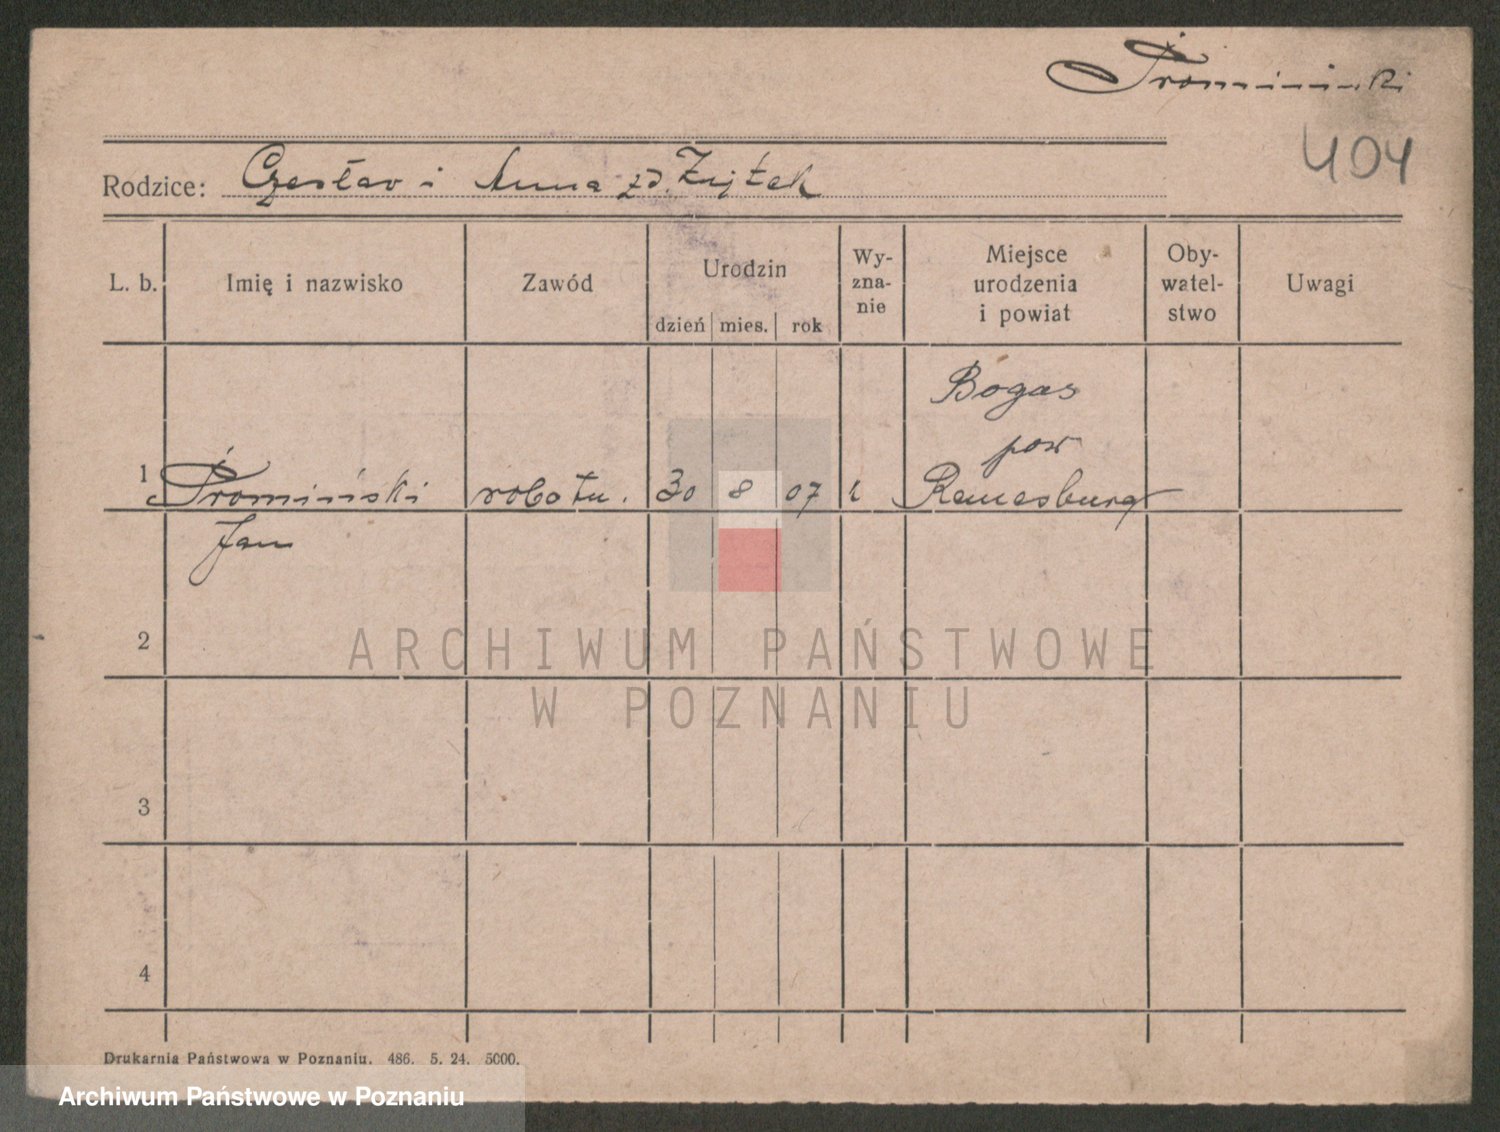 Promiński
404
Rodzice: Czesław i Anna zd.
L. b. Imię i nazwisko Zawód Urodzin dzień mies. rok Wy-zna-nie Miejsce urodzenia i powiat Oby-watel-stwo Uwagi
Bogas
pow
1 Promiński robotn. 30 8 07 Remesburg
Jan
2
3
4
ARCHIWUM PAŃSTWOWE
W POZNANIU
Drukarnia Państwowa w Poznaniu. 486. 5. 24. 5000.
Archiwum Państwowe w Poznaniu